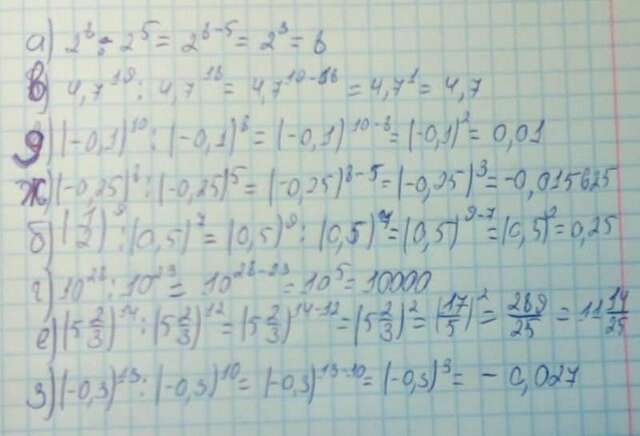 а) 2⁸ : 2⁵ = 2⁸⁻⁵ = 2³ = 8
в) 4,7¹⁹ : 4,7¹⁸ = 4,7¹⁹⁻¹⁸ = 4,7¹ = 4,7
д) (-0,1)¹⁰ : (-0,1)⁸ = (-0,1)¹⁰⁻⁸ = (-0,1)² = 0,01
ж) (-0,25)⁸ : (-0,25)⁵ = (-0,25)⁸⁻⁵ = (-0,25)³ = -0,015625
б) (1/2)⁹ : (0,5)⁷ = (0,5)⁹ : (0,5)⁷ = (0,5)⁹⁻⁷ = (0,5)² = 0,25
г) 10²⁸ : 10²³ = 10²⁸⁻²³ = 10⁵ = 10000
е) (5 2/3)¹⁴ : (5 2/3)¹² = (5 2/3)¹⁴⁻¹² = (5 2/3)² = (17/5)² = 289/25 = 11 14/25
з) (-0,3)¹³ : (-0,3)¹⁰ = (-0,3)¹³⁻¹⁰ = (-0,3)³ = -0,027